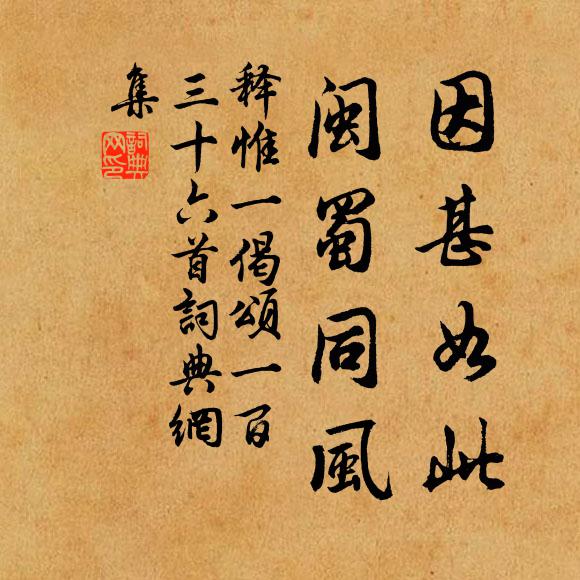 因甚如此
閩蜀同風
释惟一偈頌一百
三十六首詞典網
集
詞典
网印